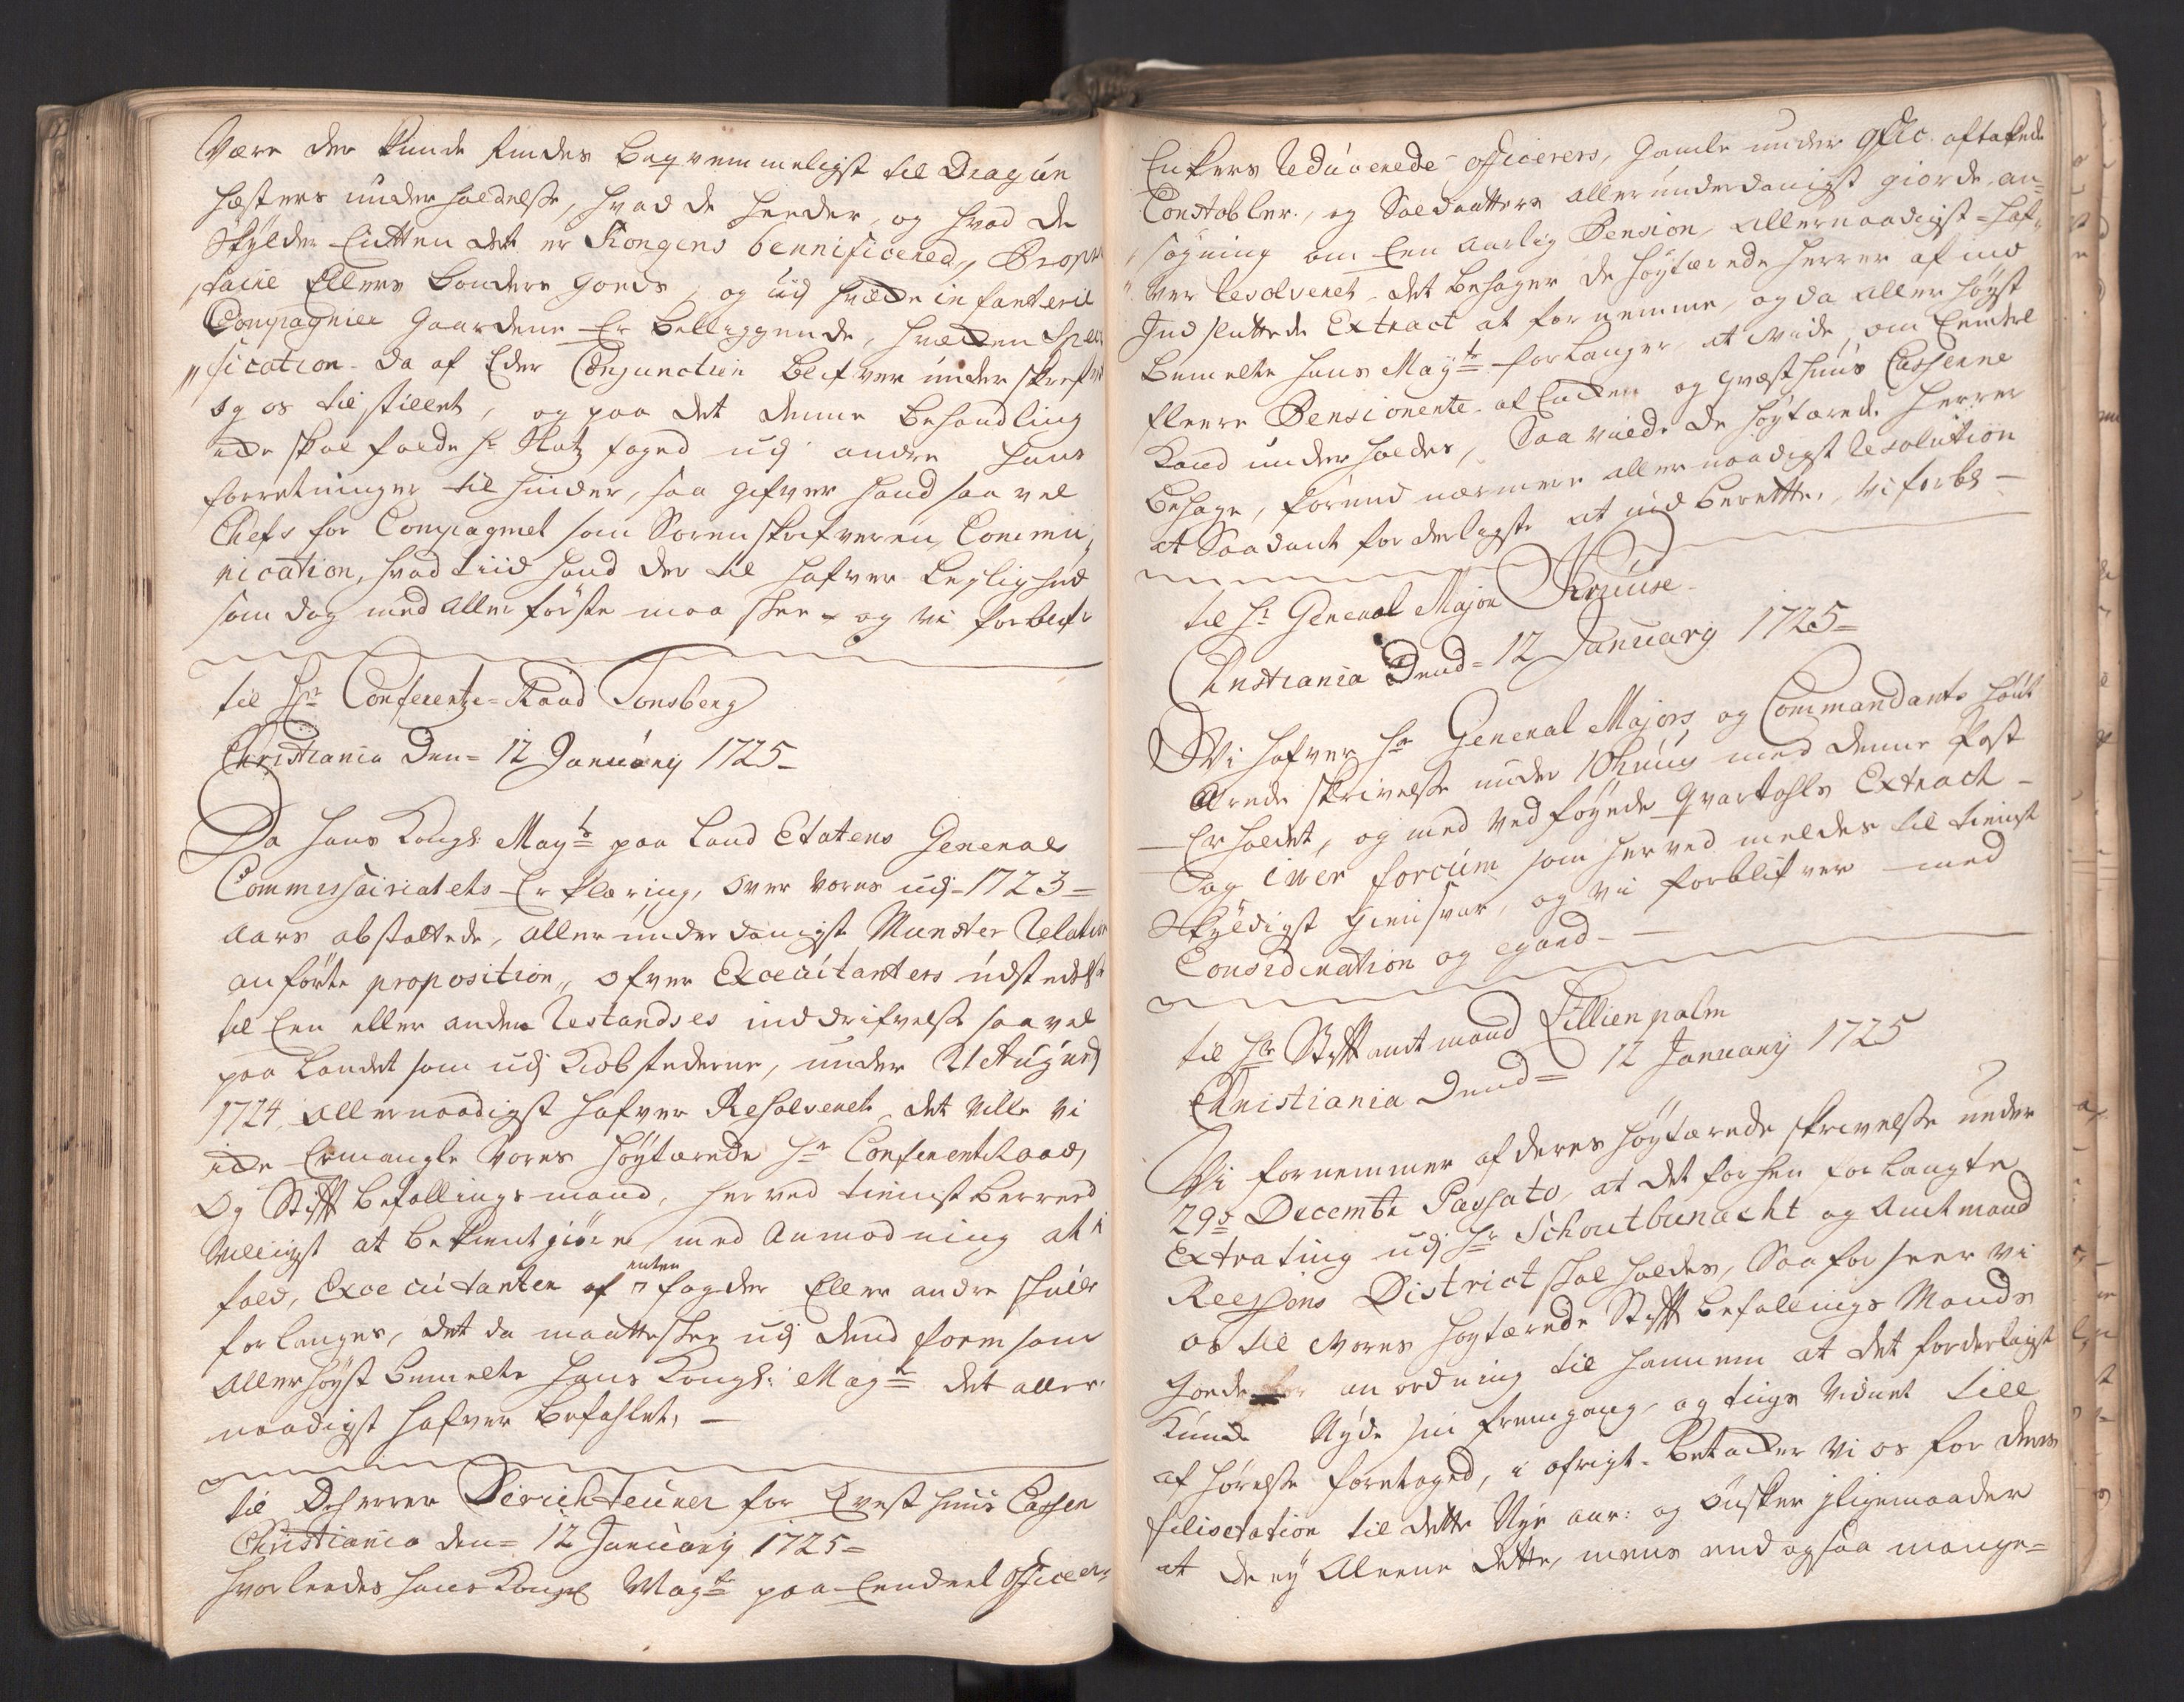 Være der kunde findes beqvemmeligst til Dragun
hæsters underholdelse, hvad de heeder, og hvad de
skylder Enten det er Kongens bennificered, Propri
taire Ellers bønders gods, og udj hvilcke infanterie
Compagnier gaardene Er beliggende, hvilcken Speci
fication da af Eder Conjunction blifver underskrefvet
og os tilstillet, og paa det denne behandling
icke skal falde Hr Slotz foged udj andre hans
forretninger til hinder, saa gifver hand saa vel
Chefs for Compagniet som Sorenskrifveren, Commu
nication, hvad tiid hand der til hafver leylighed
som dog med allerførste maa skee og vi forblifr
til Hr Conferentz-Raad Tonsberg
Christiania Den 12 January 1725
Da hans Kongl: Mayts paa Land Etatens General
Commissairiatets Erklæring, over vores udj 1723
aars abstattede, allerunderdanigst Munster Relation
anførte proposition, ofver Execiutanters udstedelse
til Een eller anden Restandses inddrifvelse saavel
paa Landet som udj Kiøbstederne, under 21 Augusti
1724 allernaadigst hafver Resolveret, det ville vi
icke Ermangle vores høytærede Hr Conferentz Raad
og Stift befallingsmand, herved tienst berreed
villigst at bekient giøre, med anmodning at i
fald, Execiutanter af enten fogder Eller andre skulle
forlanges, det da maatte skee udj dend form som
allerhøyst bemelte hans Kongl: Mayt det aller
naadigst hafver befahlet,
til De herrer Dirichteurer for Qvesthuus Cassen
Christiania den 12 January 1725
hvorledes hans Kongl Mayts paa Eendeel Officer
Enkers Reducerede officerers, gamle under offic. aftakede
Constabler, og Soldatters allerunderdanigst giorde an
søgning om Een aarlig Pension, allernaadigst haf
ver Resolveret, det behager de høytærede herrer af ind
sluttede Extract at fornemme, og da aller høyst
bemelte hans Mayts forlanger at vide, om Eendeel
fleere Pensionerte af Encker og Qvæsthuus Cassene
kand underholdes, Saa vilde de høytærede herrer
behage, forend nærmere aller naadigst Resolution
at Saadant forderligste at ind berette, vi forbl
til Hr General Major Kruuse
Christiania Dend 12 January 1725
Vi hafver Hr General Majors og Commandants høist
ærede skrivelse under 10 huius med denne Post
Erholdet, og med vedføyede Qvartahls Extract
dag over forcum som herved meldes til tienst
skyldigst Giensvar, og vi forblifver med
Consideration og egard
til Hr Stiftamtmand Lillienpalm
Christiania Dend 12 January 1725
Vi fornemmer af deres høytærede skrivelse under
29de Decembr Passato, at det forhen forlangte
Extrating udj Hr Schoutbunacht og Amtmand
Reessens District skal holdes, Saa forseer vi
os til vores høytærede Stift befallings Mands
goede anordning til hannem at det forderligst
kunde Nyde sin fremgang, og tings vidnet till
afhørelse foretaged, i ofrigt betacker vi os for deres
felisetation til dette Nye aar: og ønsker jligemaader
at de ey Aleene dette, mens end ogsaa mange